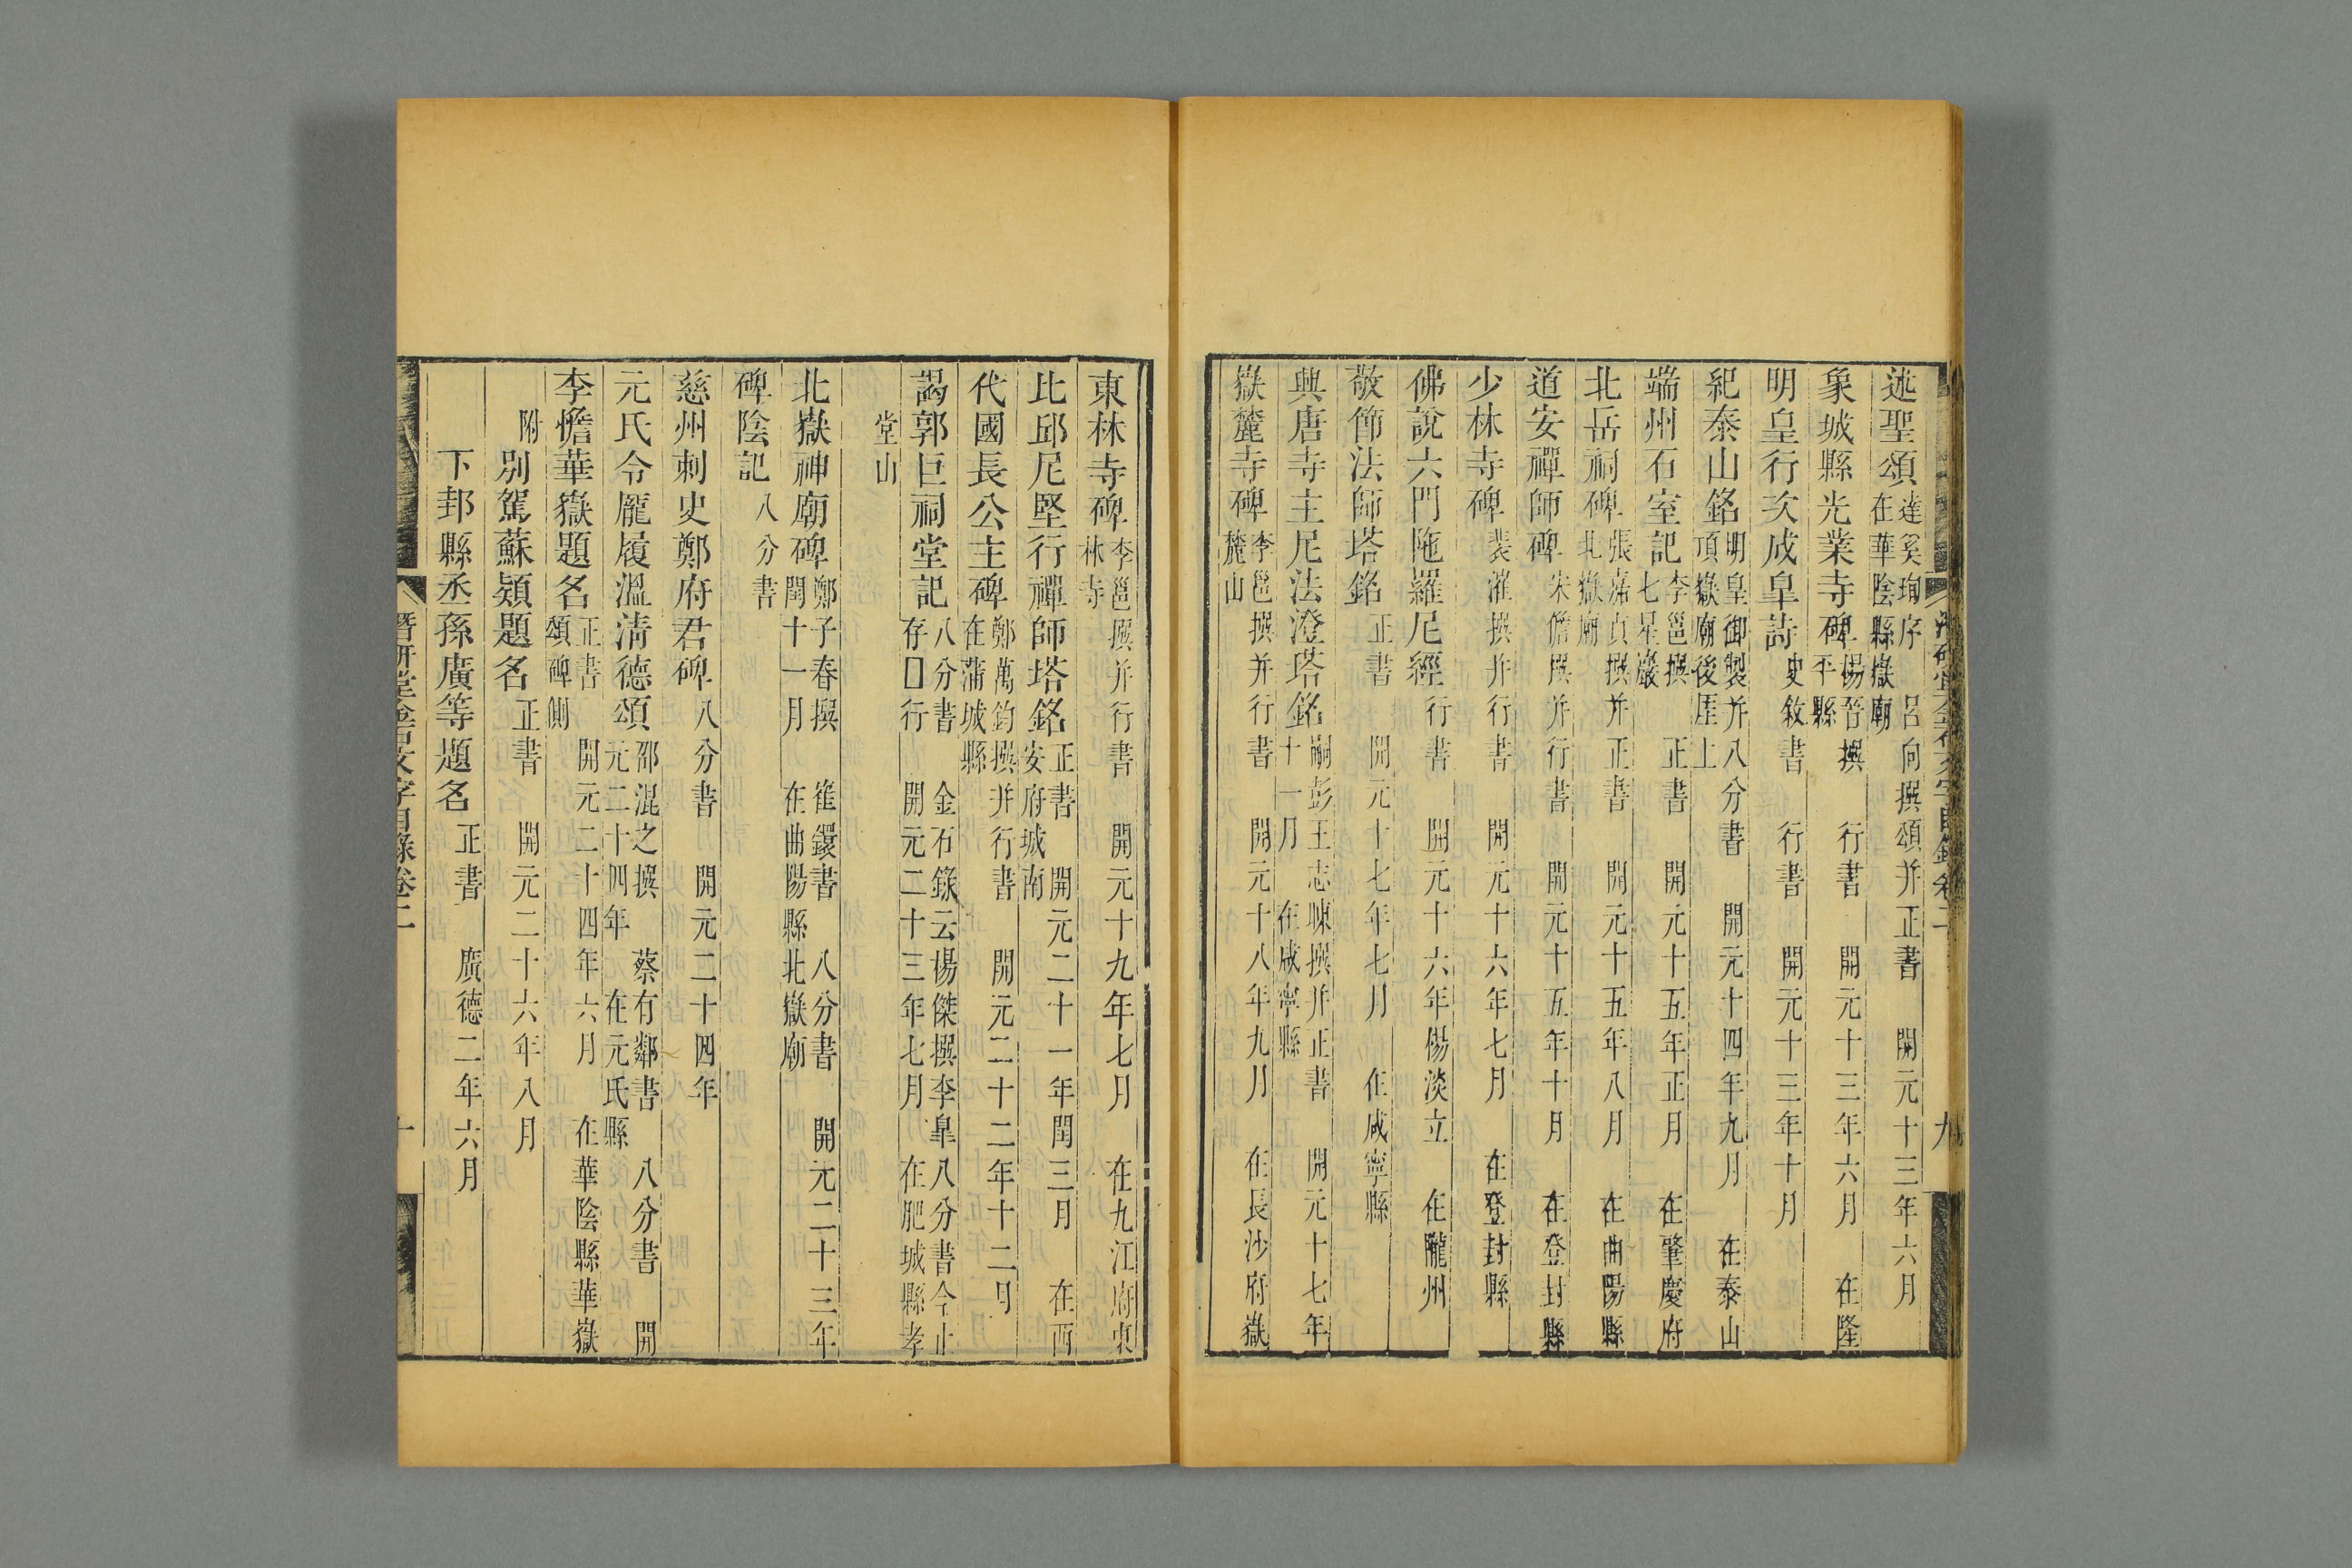 述聖頌達奚珣序 呂向撰頌并正書 開元十三年六月
在華陰縣嶽廟
象城縣光業寺碑楊晉撰 行書 開元十三年六月 在隆
平縣
明皇行次成皐詩史敘書 行書 開元十三年十月
紀泰山銘明皇御製并八分書 開元十四年九月 在泰山
頂嶽廟後厓上
端州石室記李邕撰 正書 開元十五年正月 在肇慶府
七星巖
北岳祠碑張嘉貞撰并正書 開元十五年八月 在曲陽縣
北嶽廟
道安禪師碑宋儋撰并行書 開元十五年十月 在登封縣
少林寺碑裴漼撰并行書 開元十六年七月 在登封縣
佛說六門陁羅尼經行書 開元十六年楊淡立 在隴州
敬節法師塔銘正書 開元十七年七月 在咸寧縣
興唐寺主尼法澄塔銘嗣彭王志暕撰并正書 開元十七年
十一月 在咸寧縣
嶽麓寺碑李邕撰并行書 開元十八年九月 在長沙府嶽
麓山
九
東林寺碑李邕撰并行書 開元十九年七月 在九江府東
林寺
比邱尼堅行禪師塔銘正書 開元二十一年閏三月 在西
安府城南
代國長公主碑鄭萬鈞撰并行書 開元二十二年十二月
在蒲城縣
謁郭巨祠堂記八分書 金石錄云楊傑撰李臯八分書今止
存囗行 開元二十三年七月 在肥城縣孝
堂山
北嶽神廟碑鄭子春撰 崔鐶書 八分書 開元二十三年
閏十一月 在曲陽縣北嶽廟
碑陰記八分書
慈州刺史鄭府君碑八分書 開元二十四年
元氏令龐履溫清德頌邵混之撰 蔡有鄰書 八分書 開
元二十四年 在元氏縣
李憺華嶽題名正書 開元二十四年六月 在華陰縣華嶽
頌碑側
附
別駕蘇頴題名正書 開元二十六年八月
下邽縣丞孫廣等題名正書 廣德二年六月
潛研堂金石文字目錄卷二 十